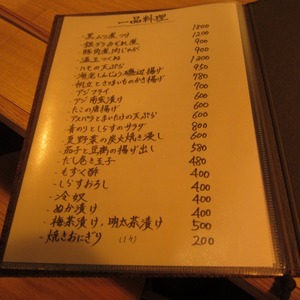 一品料理
・黒ムツ煮つけ 1800
・銀ダラみぞれ煮 1200
・豚角煮肉じゃが 900
・温玉つくね 900
・ハモの天ぷら 1200
・海老しんじょう磯辺揚げ 950
・帆立とさつまいものかき揚げ 780
・アジフライ 700
・アジ南蛮漬け 600
・たこの唐揚げ 600
・アスパラとまいたけの天ぷら 600
・青のりとしらすのサラダ 800
・夏野菜の炭火焼き浸し 600
・茄子と豆腐の揚げ出し 580
・だし巻き玉子 480
・もずく酢 400
・しらすおろし 400
・冷奴 400
・ぬか漬け 400
・梅茶漬け、明太茶漬け 500
・焼きおにぎり (1ケ) 200